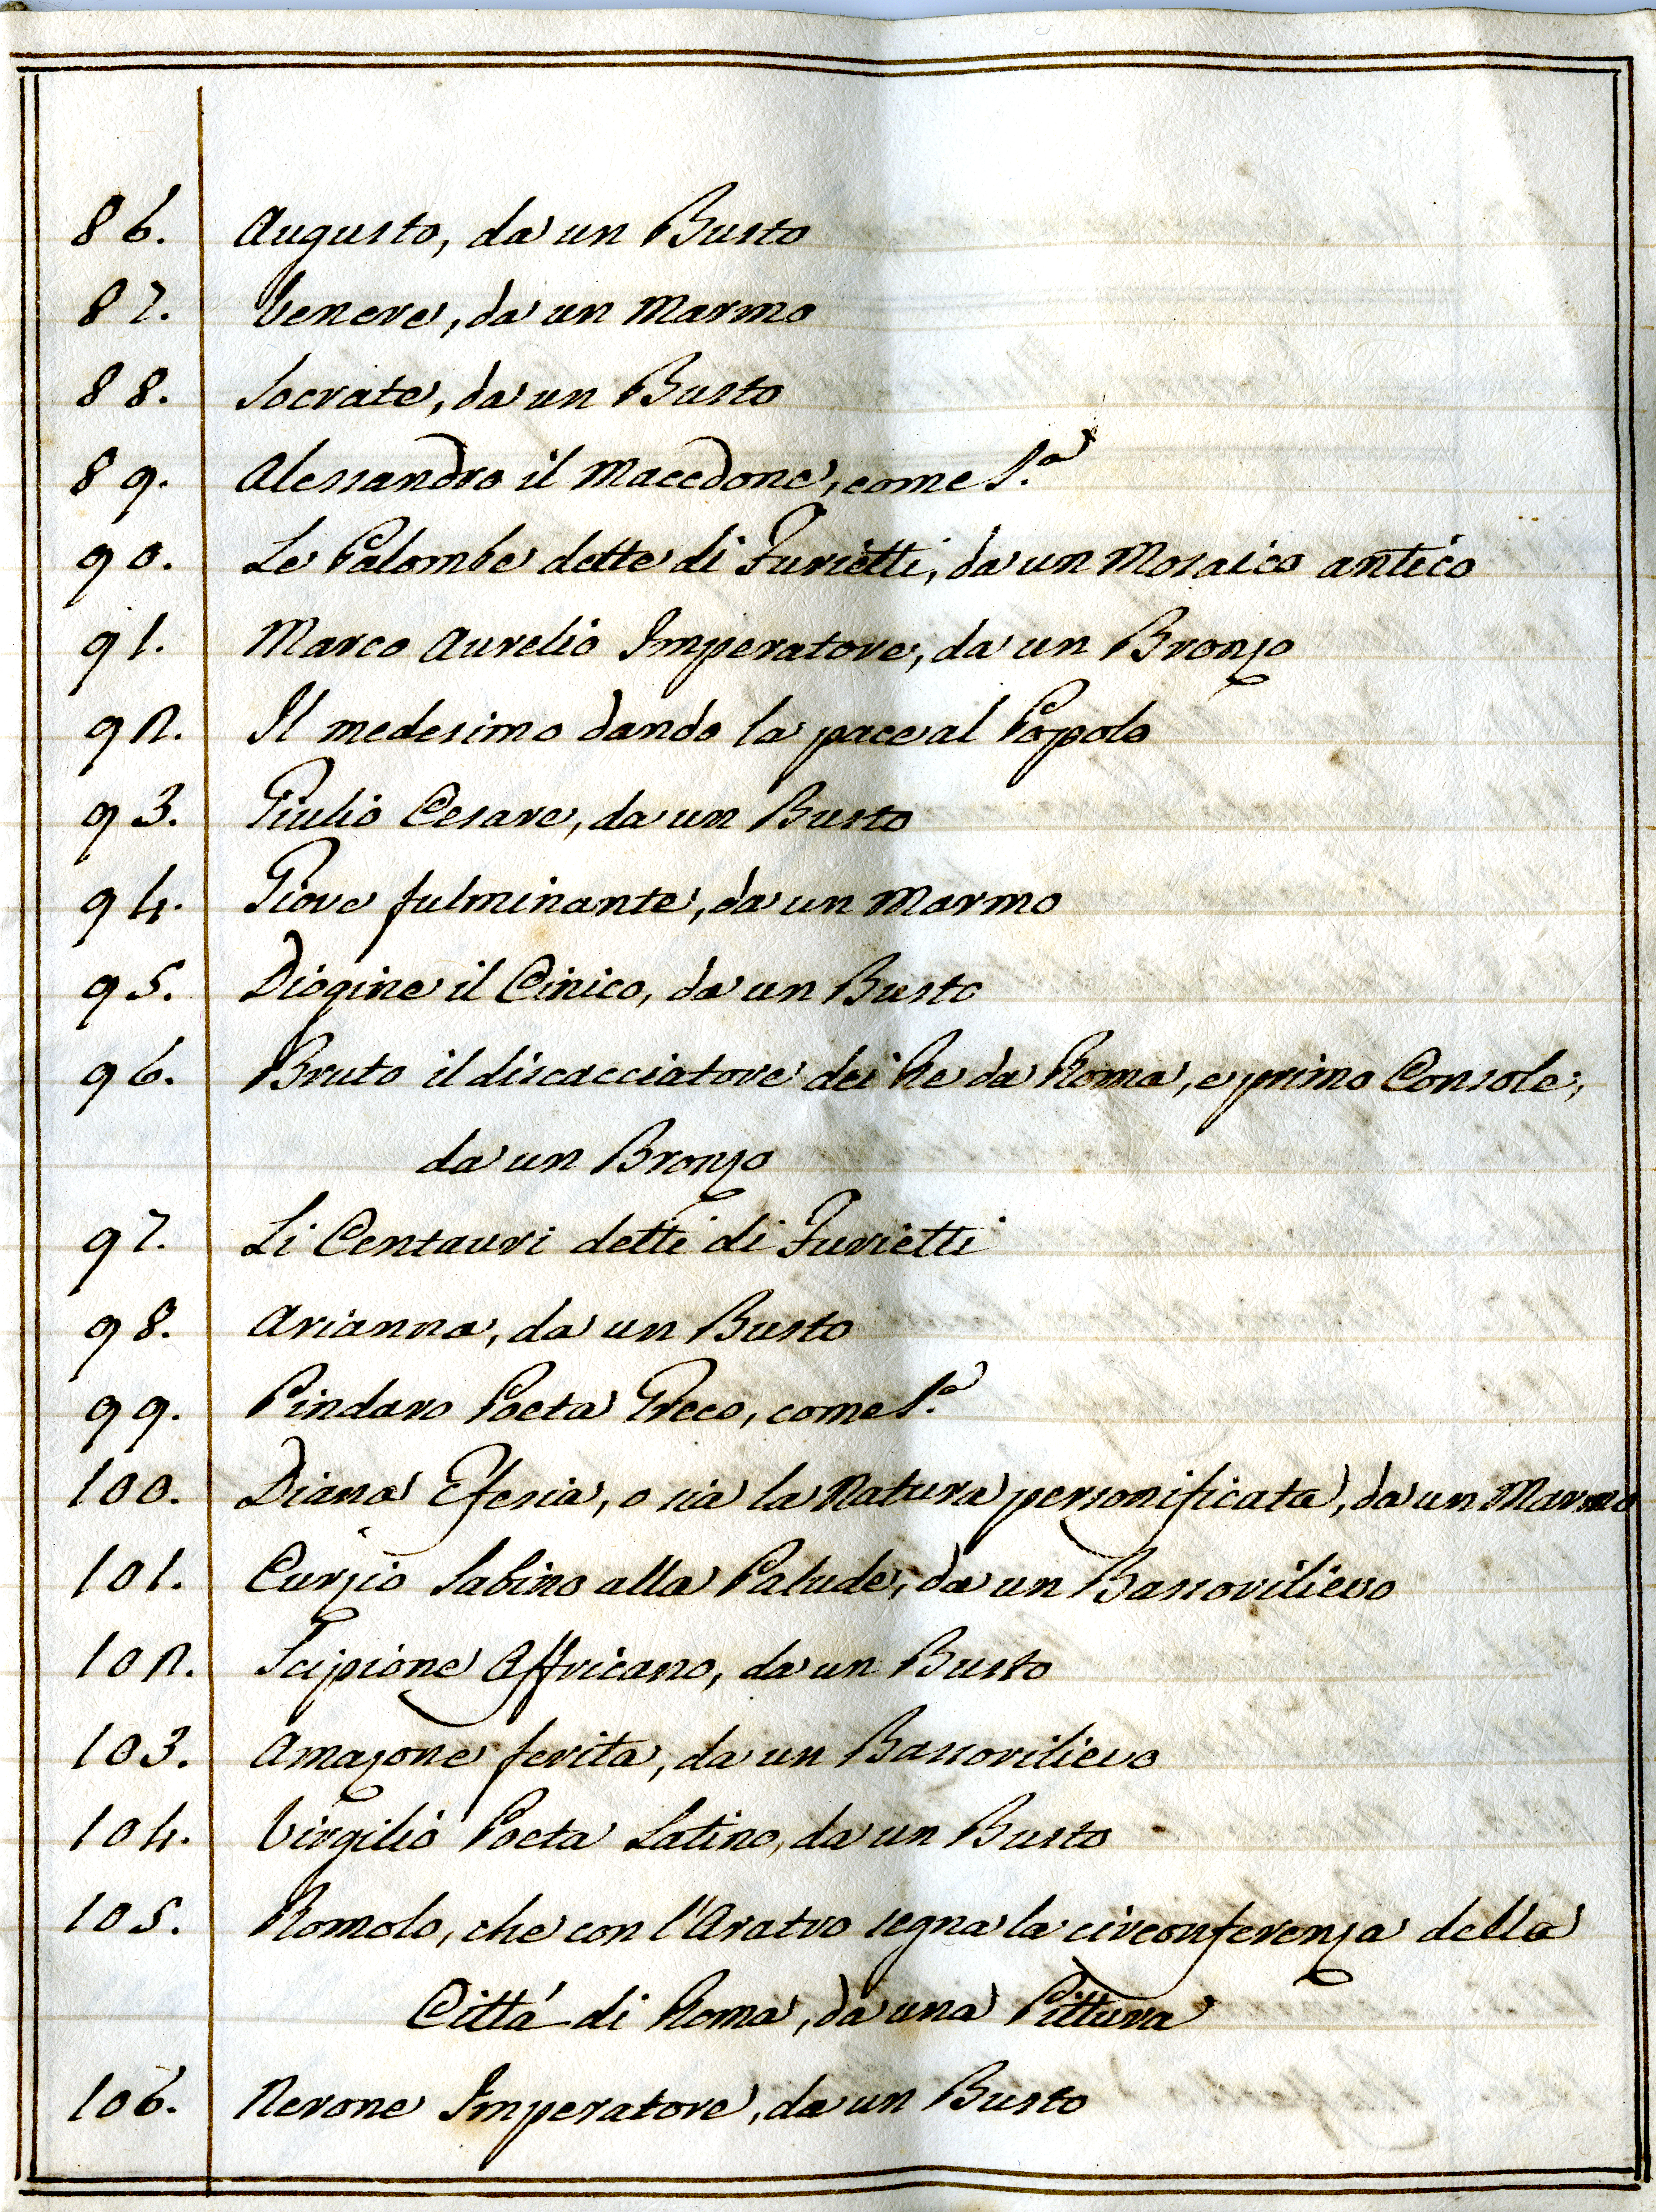 86. Augusto, da un Busto
87. Venere, da un Marmo
88. Socrate, da un Busto
89. Alessandro il Macedone, come S.ª
90. Le Palombe dette di Furietti, da un Mosaico antico
91. Marco Aurelio Imperatore, da un Bronzo
92. Il medesimo dando la pace al Popolo
93. Giulio Cesare, da un Busto
94. Giove fulminante, da un Marmo
95. Diogine il Cinico, da un Busto
96. Bruto il discacciatore dei Re da Roma, e primo Console,
da un Bronzo
97. Li Centauri detti di Furietti
98. Arianna, da un Busto
99. Pindaro Poeta Greco, come S.ª
100. Diana Efesia, o sia la Natura personificata, da un Marmo
101. Curzio Sabino alla Palude, da un Bassorilievo
102. Scipione Affricano, da un Busto
103. Amazone ferita, da un Bassorilievo
104. Virgilio Poeta Latino, da un Busto
105. Romolo, che con l'Aratro segna la circonferenza della
Cittá di Roma, da una Pittura
106. Nerone Imperatore, da un Busto